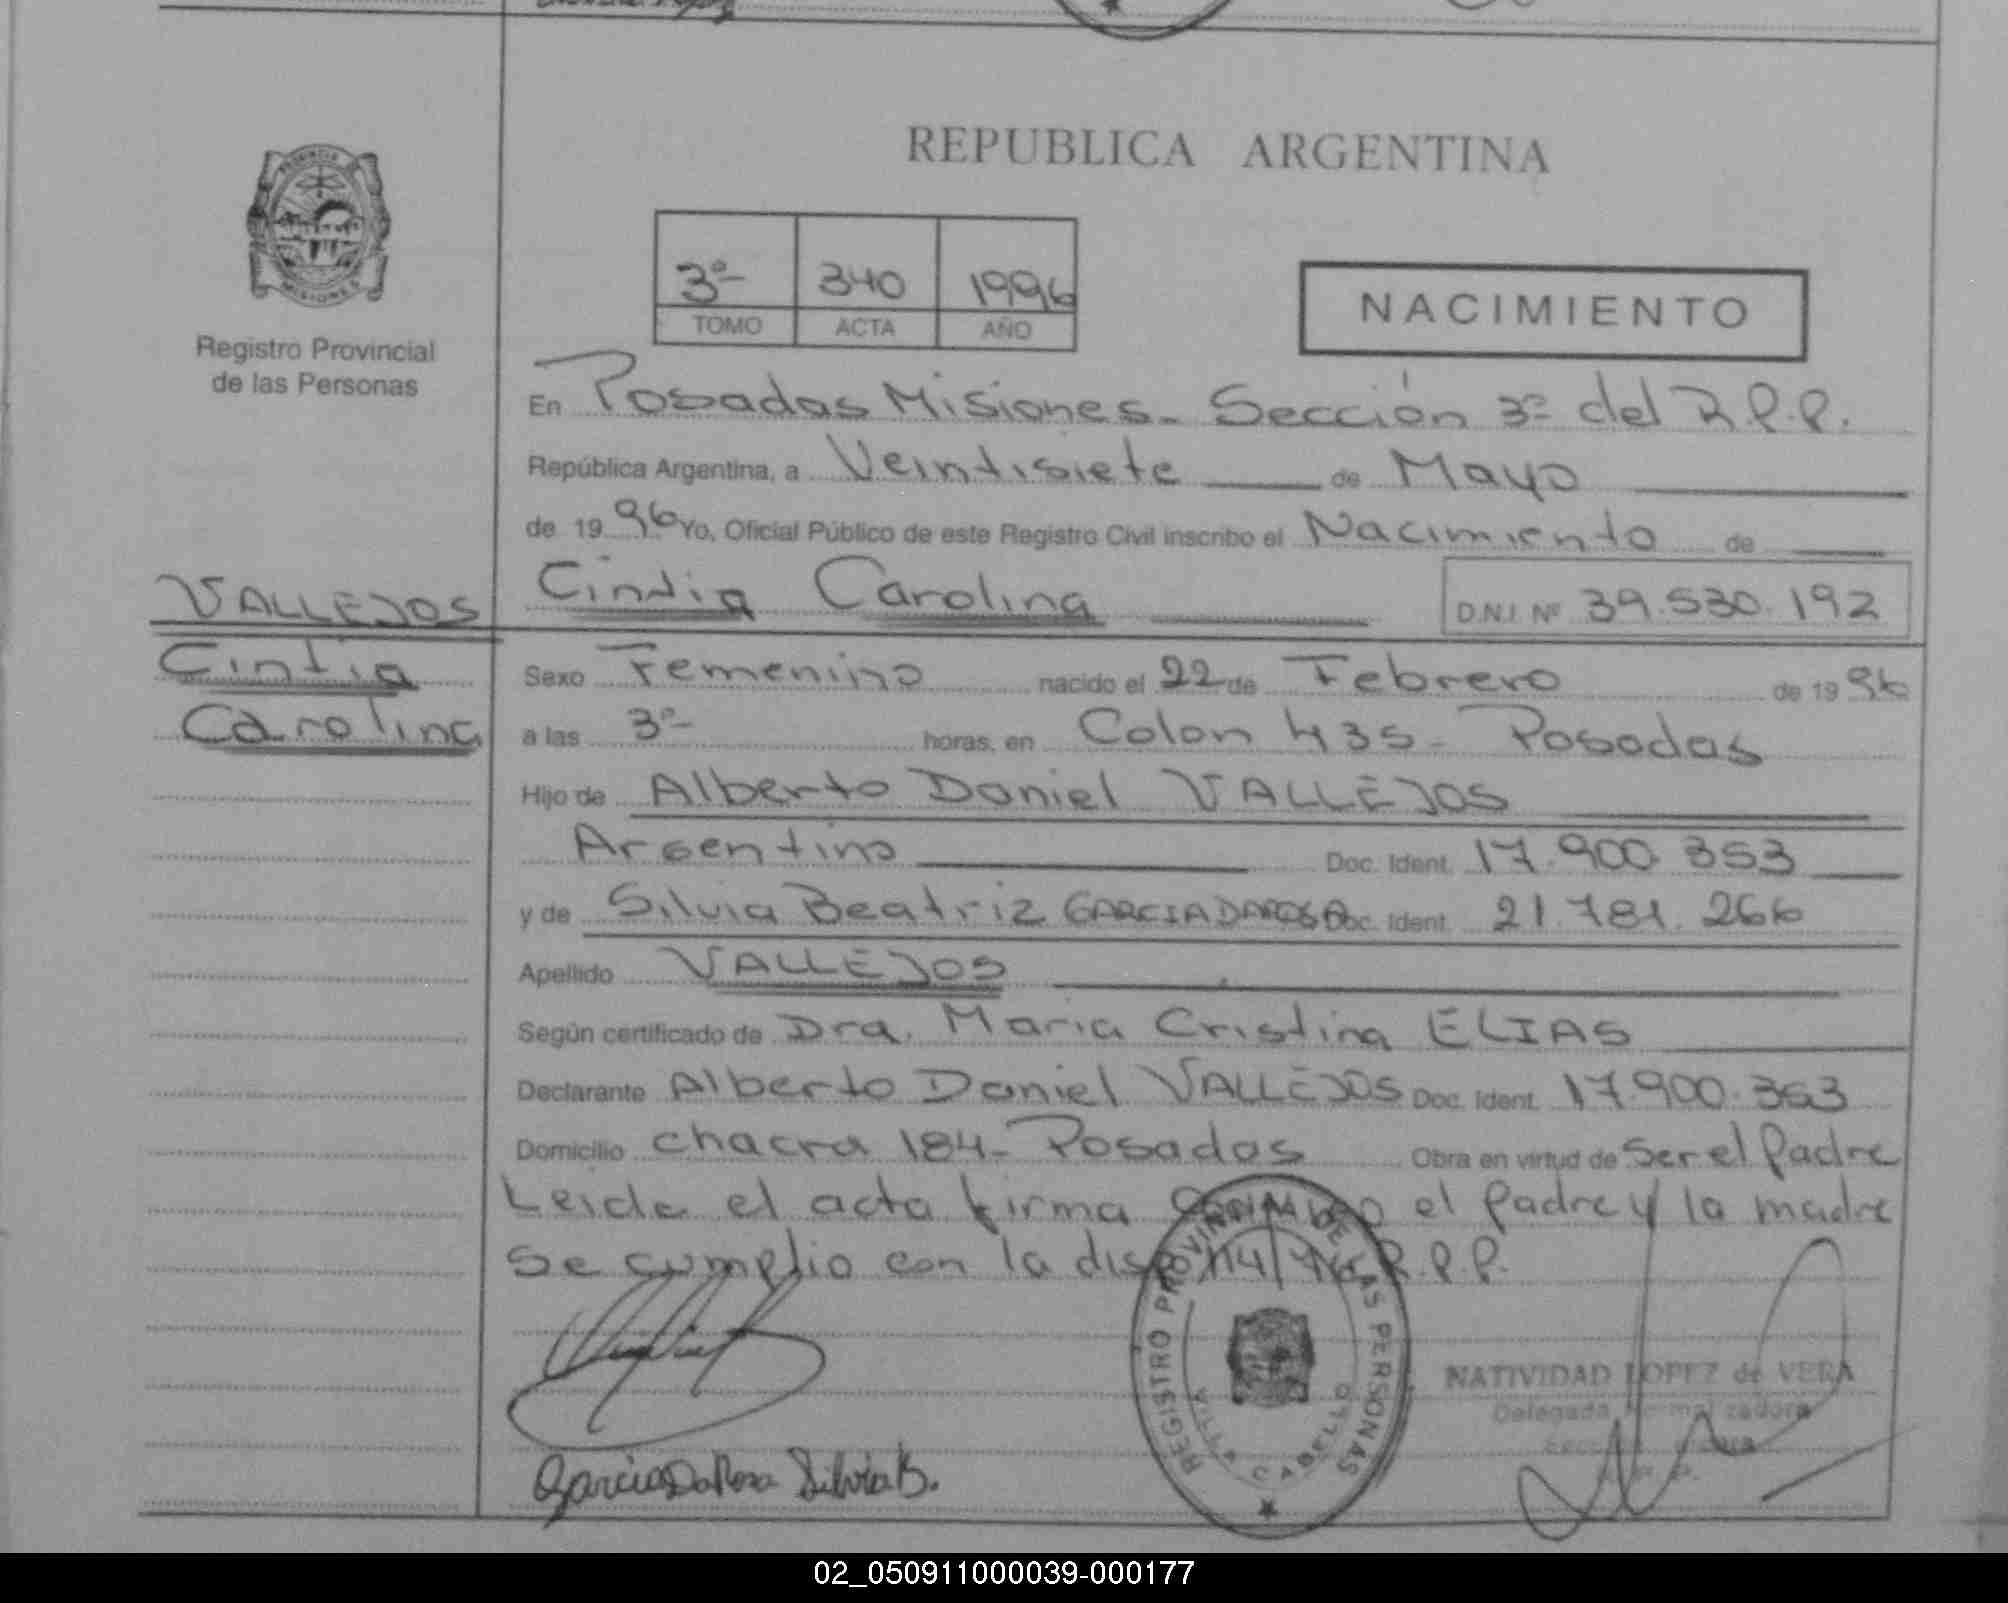 REPUBLICA ARGENTINA
PROVINCIA
MISIONES
Registro Provincial
de las Personas
3º 340 1996
TOMO ACTA AÑO
NACIMIENTO
En Posadas Misiones - Sección 3º del R.P.P.
República Argentina, a Veintisiete de Mayo
de 19 96 Yo, Oficial Público de este Registro Civil inscribo el Nacimiento de
VALLEJOS
Cintia
Carolina
Cintia Carolina D.N.I. Nº 39.530.192
Sexo Femenino nacido el 22 de Febrero de 19 96
a las 3º horas, en Colon 435 - Posadas
Hijo de Alberto Daniel VALLEJOS
Argentino Doc. Ident. 17.900.353
y de Silvia Beatriz GARCIA DAROSA Doc. Ident. 21.781.266
Apellido VALLEJOS
Según certificado de Dra. Maria Cristina ELIAS
Declarante Alberto Daniel VALLEJOS Doc. Ident. 17.900.363
Domicilio chacra 184 - Posadas Obra en virtud de Ser el Padre
Leida el acta firma el Padre y la madre
Se cumplio con la R.P.P.
REGISTRO PROVINCIAL DE LAS PERSONAS
VILLA CABELLO
NATIVIDAD LOPEZ de VERA
Delegada Normalizadora
Garcia Da Rosa Silvia B.
02_050911000039-000177